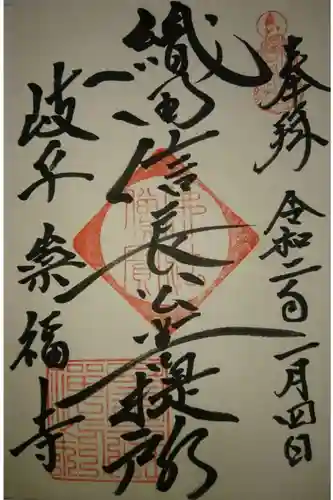 奉拝
令和二年一月四日
織田信長公菩提所
岐阜 崇福寺